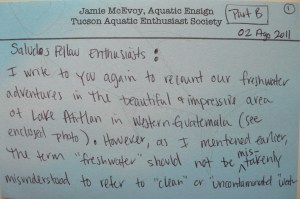 Jamie McEvoy, Aquatic Ensign
Tucson Aquatic Enthusiast Society
Part B
1
02 Ago 2011
Saludos Fellow Enthusiasts:
I write to you again to recount our freshwater
adventures in the beautiful & impressive area
of Lake Atitlan in Western Guatemala (see
enclosed photo). However, as I mentioned earlier,
the term "freshwater" should not be mis-
takenly
misunderstood to refer to "clean" or "uncontaminated"